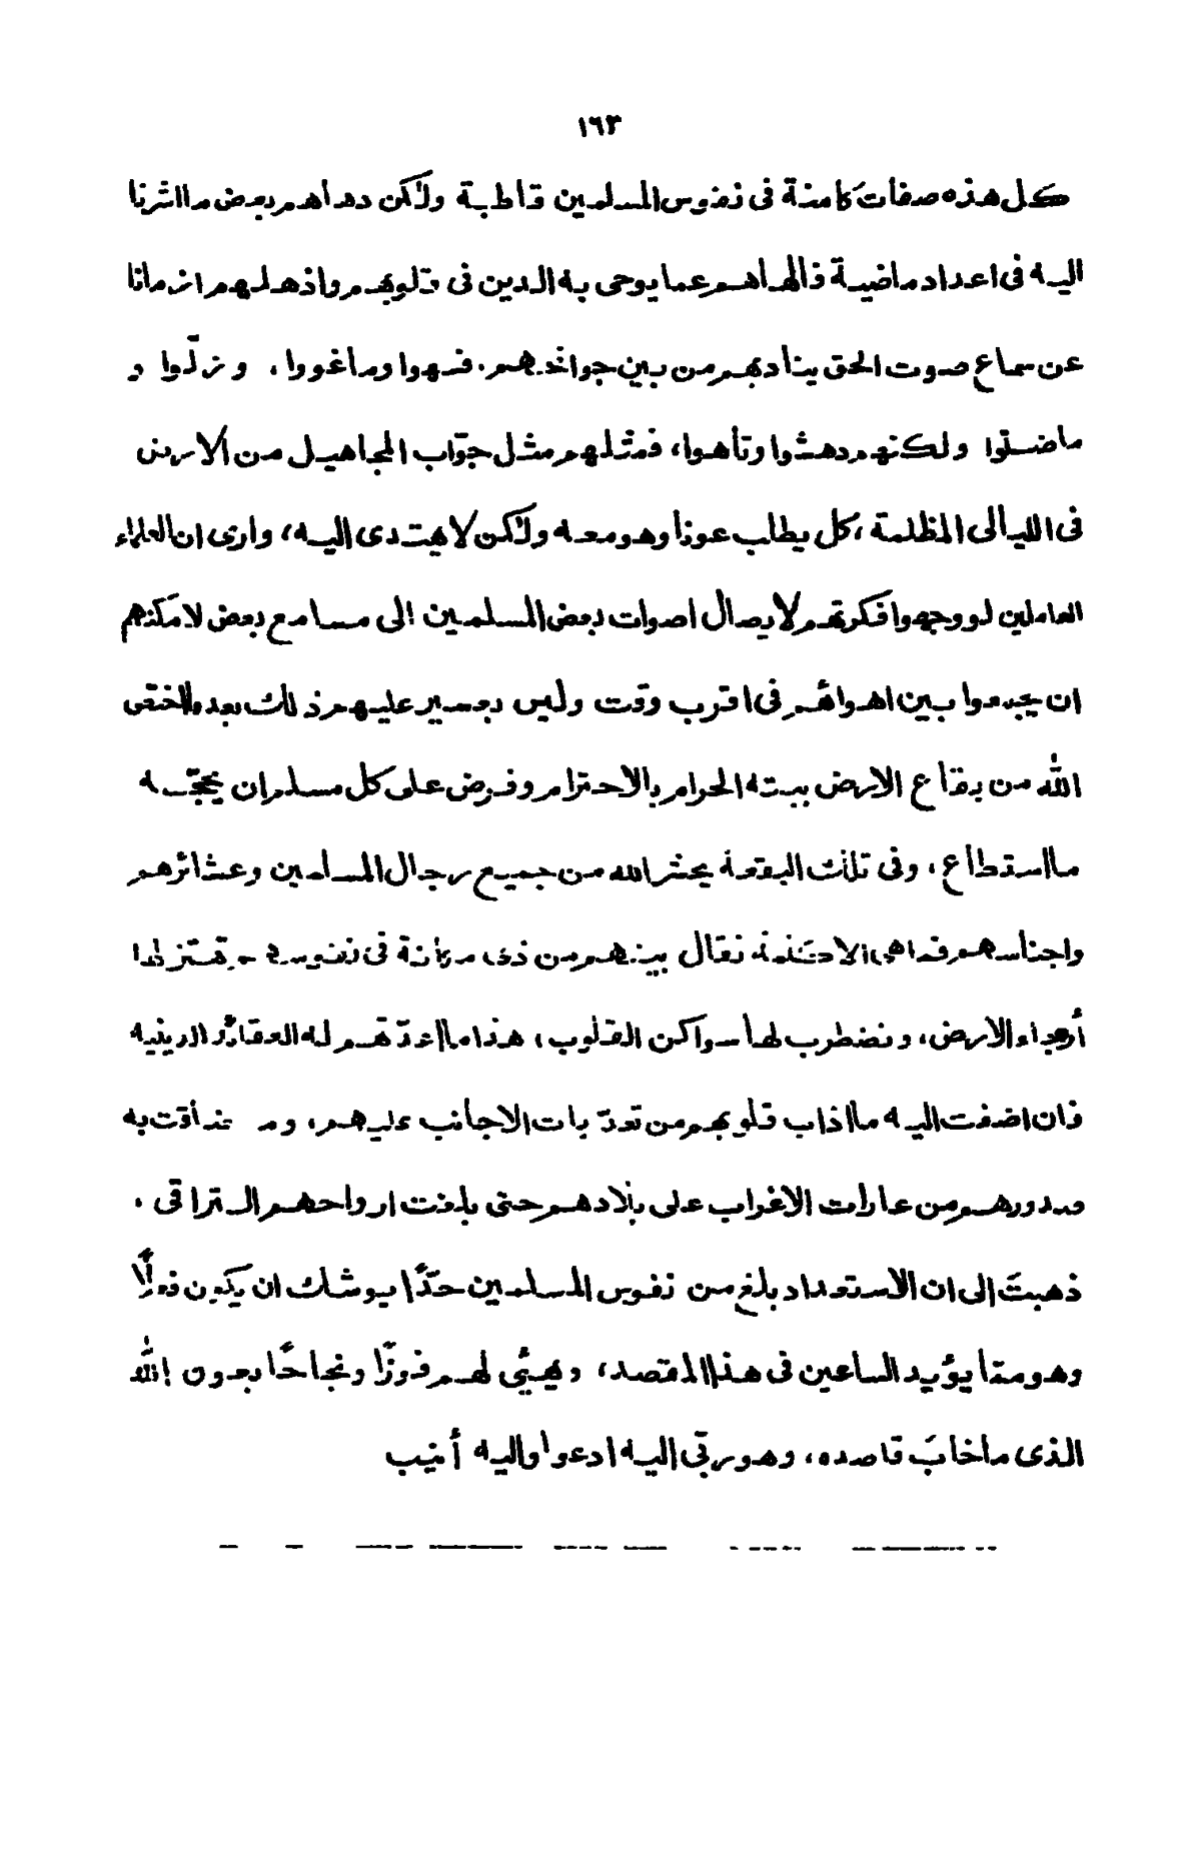 ١٦٣
كل هذه صفات كامنة فى نفوس المسلمين قاطبة ولكن دهاهم بعض ما اشرنا
اليه فى اعداد ماضية فالهاهم عما يوحى به الدين فى قلوبهم واذهلهم ازمانا
عن سماع صوت الحق يناديهم من بين جوانحهم. فسهوا وما غووا، وزلّوا و
ما ضلّوا ولكنهم دهشوا وتأهوا، فمثلهم مثل جوّاب المجاهيل من الارض
فى الليالى المظلمة، كل يطلب عونا وهو معه ولكن لا يهتدى اليه، وارى ان العلماء
العاملين لو وجهوا فكرتهم لايصال اصوات بعض المسلمين الى مسامع بعض لامكنهم
ان يجمعوا بين اهوائهم فى اقرب وقت وليس بعسير عليهم ذلك بعد ما اختص
الله من بقاع الارض بيته الحرام بالاحترام وفرض على كل مسلم ان يحجّه
ما استطاع، وفى تلك البقعة يحشر الله من جميع رجال المسلمين وعشائرهم
واجناسهم فما هى الا كلمة تقال بينهم من ذى مكانة فى نفوسهم تهتز لها
أرجاء الارض، وتضطرب لها سواكن القلوب، هذا ما اعدّتهم له العقائد الدينية
فان اضفت اليه ما اذاب قلوبهم من تعدّيات الاجانب عليهم، وما ضاقت به
صدورهم من غارات الاغراب على بلادهم حتى بلغت ارواحهم التراقى،
ذهبتَ الى ان الاستعداد بلغ من نفوس المسلمين حدًّا يوشك ان يكون فعلًا
وهو ممّا يؤيد الساعين فى هذا المقصد، ويهيّئ لهم فوزًا ونجاحًا بعون الله
الذى ما خابَ قاصده، وهو ربّى اليه ادعوا واليه أنيب